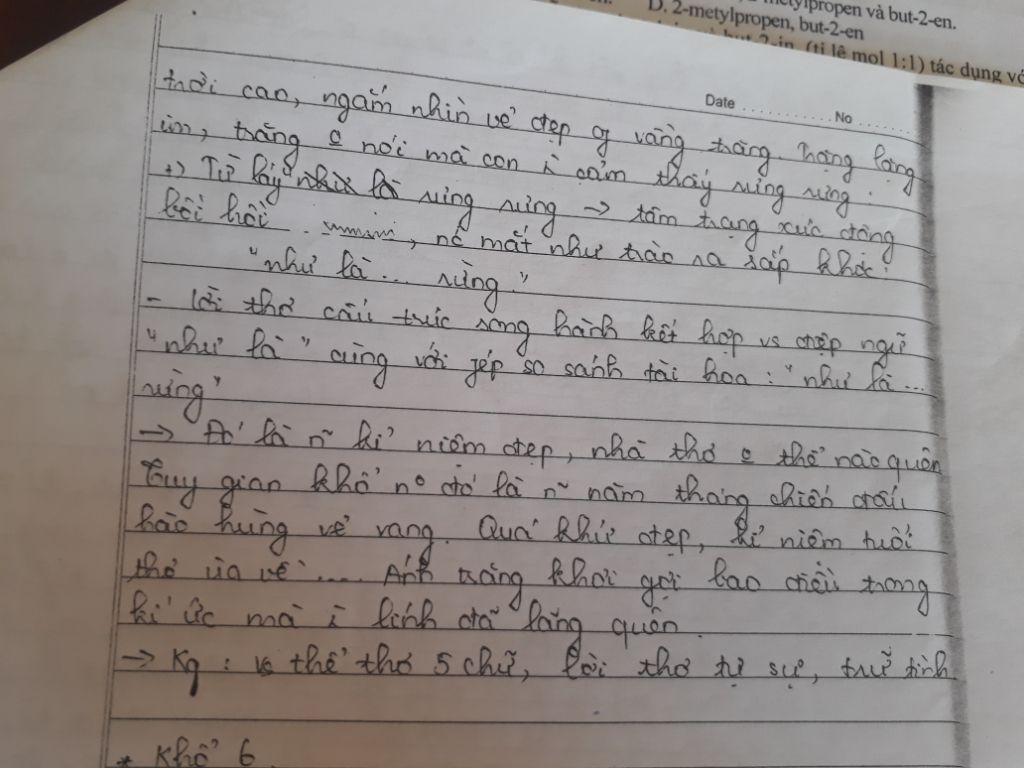 metylpropen và but-2-en.
D. 2-metylpropen, but-2-en
(tỉ lệ mol 1:1) tác dụng vớ
Date No
trời cao, ngắm nhìn vẻ đẹp of vầng trăng. Trăng lặng
im, trăng o nói mà con i cảm thấy rưng rưng.
+) Từ láy rưng rưng → tâm trạng xúc động
bồi hồi , nc mắt như trào ra sắp khóc.
"như là ... rừng."
- lời thơ cấu trúc song hành kết hợp vs điệp ngữ
"như là" cùng với fép so sánh tài hoa : "như là ...
rừng"
→ Đó là n~ kỉ niệm đẹp, nhà thơ o thể nào quên
Tuy gian khổ n° đó là n~ năm tháng chiến đấu
hào hùng vẻ vang. Quá khứ đẹp, kỉ niệm tuổi
thơ ùa về .... Ánh trăng khơi gợi bao điều trong
kí ức mà i lính đã lãng quên.
→ Kq : vs thể thơ 5 chữ, lời thơ tự sự, trữ tình
* Khổ 6